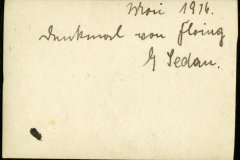 Mai 1916.
Denkmal von Floing
b/ Sedan.